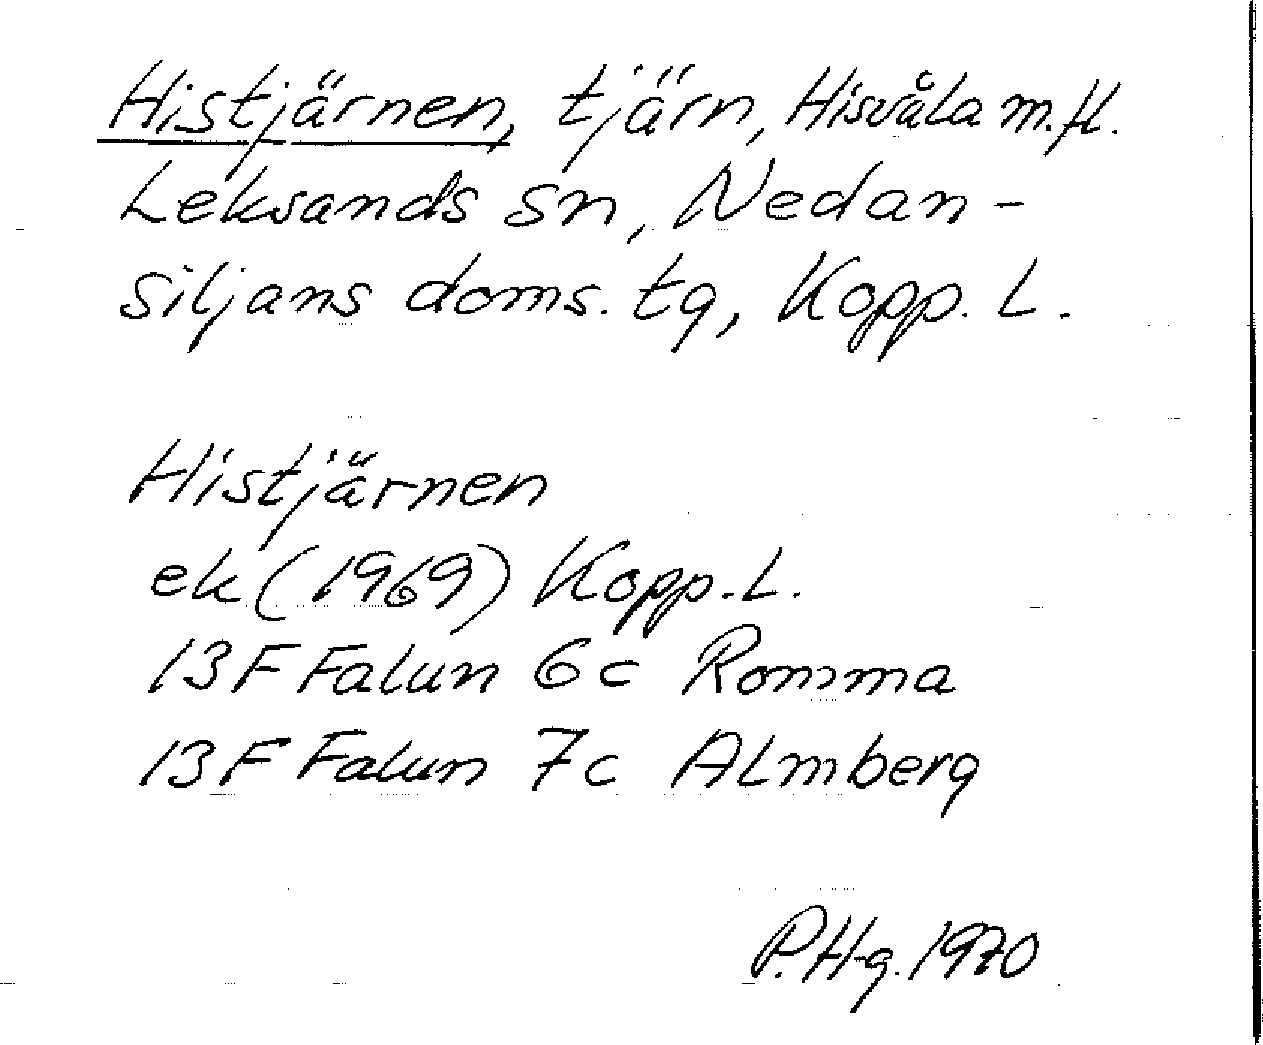 Histjärnen, tjärn, Hisvåla m.fl.
Leksands sn, Nedan-
siljans doms. tg, Kopp. L.
Histjärnen
ek (1969) Kopp. L.
13F Falun 6c Romma
13F Falun 7c Almberg
P. H-g. 1970